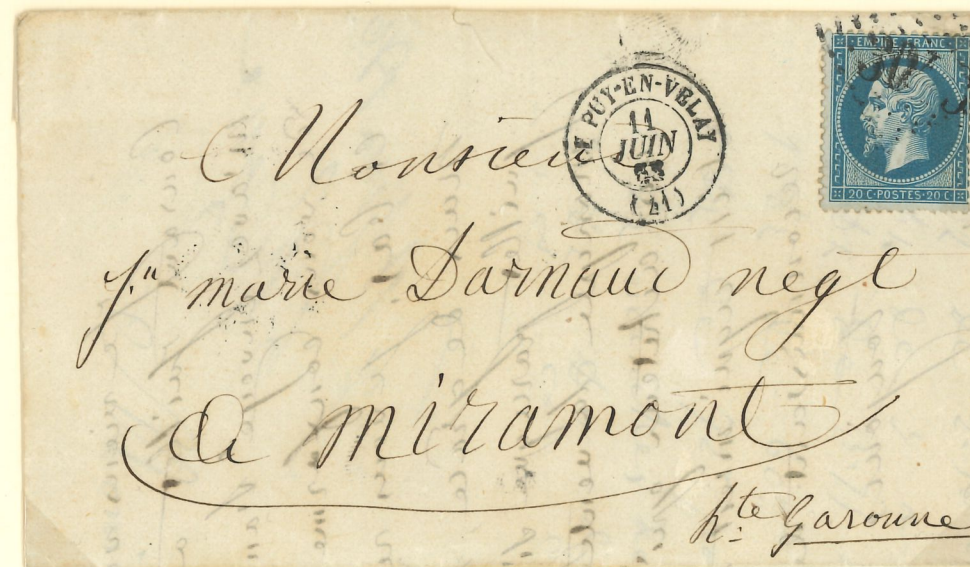 LE PUY-EN-VELAY
11
JUIN
63
(41)
EMPIRE FRANC
20 C·POSTES·20 C
Monsieur
Jn marie Darnaud negt
a miramont
hte Garonne